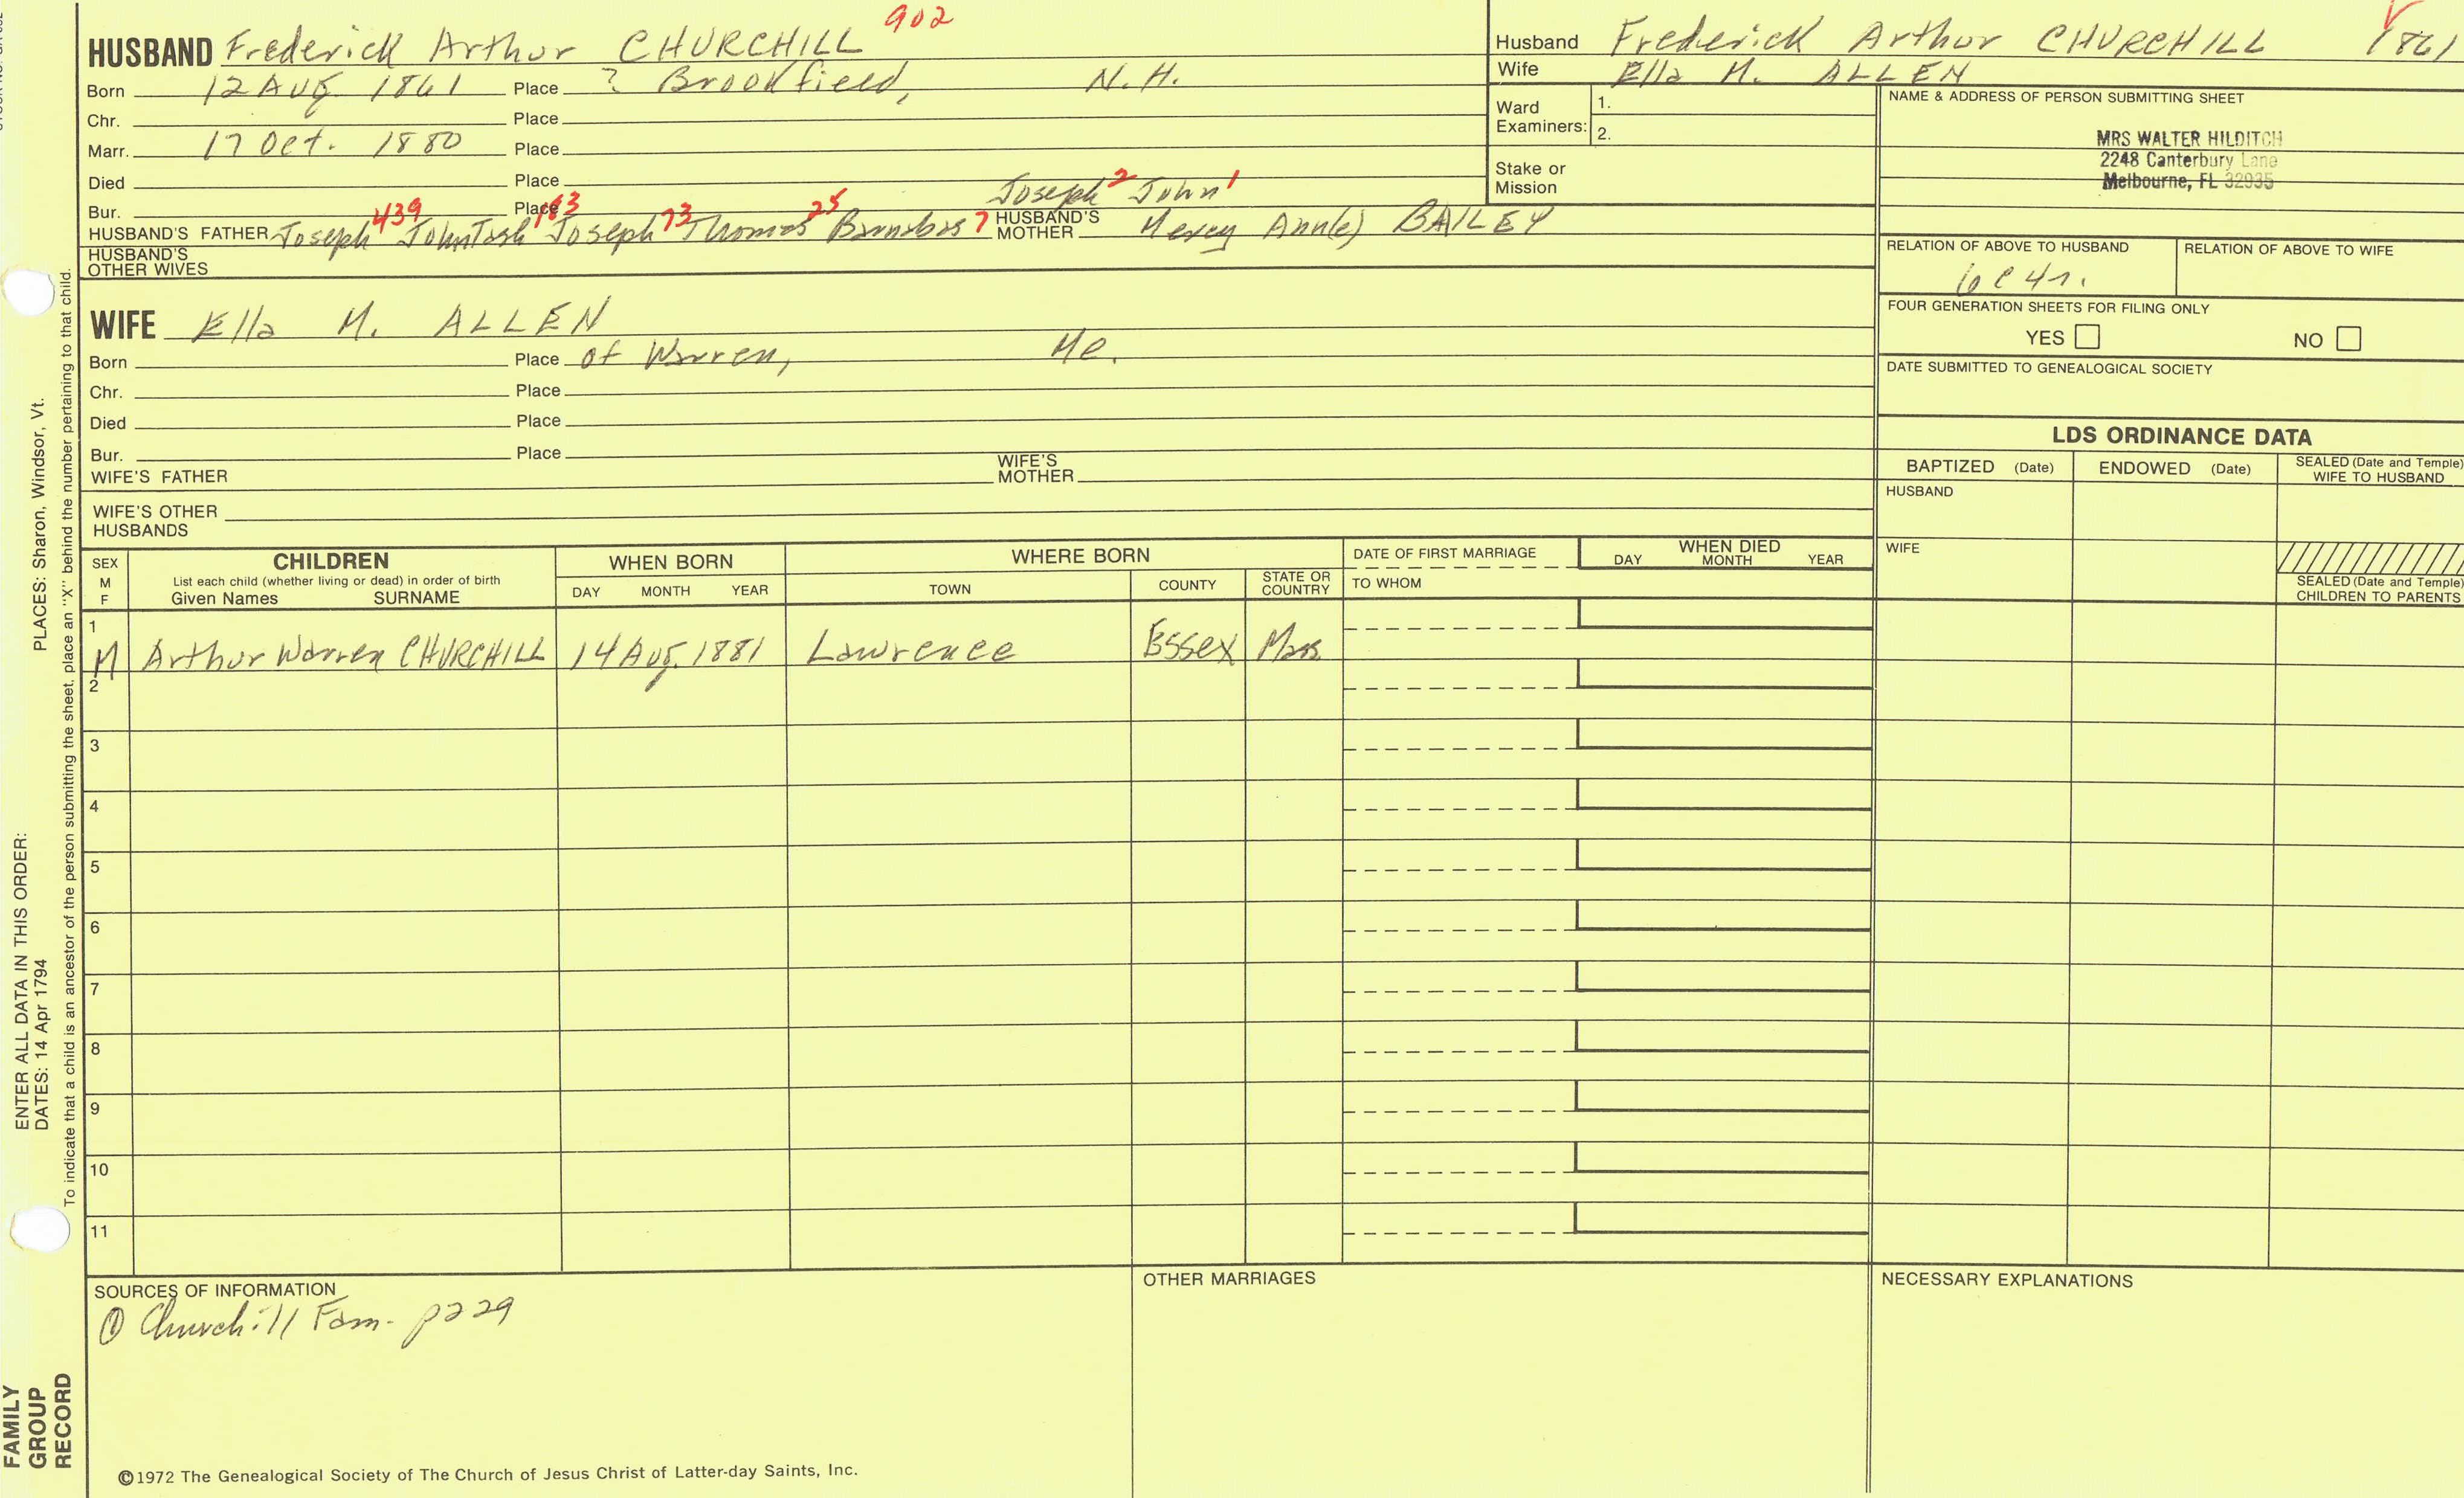 902
HUSBAND Frederick Arthur CHURCHILL
Born 12 Aug 1861 Place ? Brookfield, N.H.
Chr. Place
Marr. 17 Oct. 1880 Place
Died Place
Bur. Place
Joseph 2 John 1
439 183 73 25 7
HUSBAND'S FATHER Joseph JohnTash Joseph Thomas Barnabas HUSBAND'S MOTHER Mercy Ann(e) BAILEY
HUSBAND'S OTHER WIVES
WIFE Ella M. ALLEN
Born Place of Warren, Me.
Chr. Place
Died Place
Bur. Place
WIFE'S FATHER WIFE'S MOTHER
WIFE'S OTHER HUSBANDS
Husband Frederick Arthur CHURCHILL 1861
Wife Ella M. ALLEN
Ward Examiners: 1.
2.
Stake or Mission
NAME & ADDRESS OF PERSON SUBMITTING SHEET
MRS WALTER HILDITCH
2248 Canterbury Lane
Melbourne, FL 32935
RELATION OF ABOVE TO HUSBAND RELATION OF ABOVE TO WIFE
6c4r.
FOUR GENERATION SHEETS FOR FILING ONLY
YES NO
DATE SUBMITTED TO GENEALOGICAL SOCIETY
LDS ORDINANCE DATA
BAPTIZED (Date) ENDOWED (Date) SEALED (Date and Temple) WIFE TO HUSBAND
HUSBAND
WIFE
SEALED (Date and Temple) CHILDREN TO PARENTS
SEX M F
CHILDREN
List each child (whether living or dead) in order of birth
Given Names SURNAME
WHEN BORN
DAY MONTH YEAR
WHERE BORN
TOWN COUNTY STATE OR COUNTRY
DATE OF FIRST MARRIAGE
TO WHOM
WHEN DIED
DAY MONTH YEAR
1
M Arthur Warren CHURCHILL 14 Aug. 1881 Lawrence Essex Mass.
2
3
4
5
6
7
8
9
10
11
SOURCES OF INFORMATION
① Churchill Fam. p229
OTHER MARRIAGES
NECESSARY EXPLANATIONS
©1972 The Genealogical Society of The Church of Jesus Christ of Latter-day Saints, Inc.
FAMILY
GROUP
RECORD
ENTER ALL DATA IN THIS ORDER:
DATES: 14 Apr 1794 PLACES: Sharon, Windsor, Vt.
To indicate that a child is an ancestor of the person submitting the sheet, place an "X" behind the number pertaining to that child.